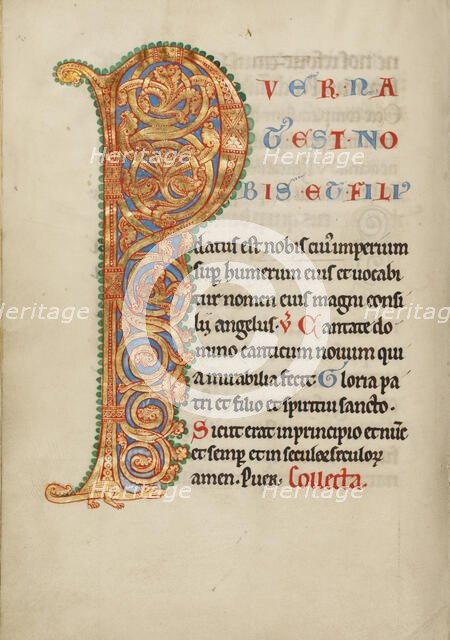 P VER·NA
T·EST·NO
BIS·ET·FILIꝰ
datus est nobis cuiꝰ imperium
sup humerum eius et vocabi
tur nomen eius magni consi
lij angelus. V̓ Cantate do
mino canticum novum qui
a mirabilia fecit. Gloria pa
tri et filio et spiritui sancto.
Sicut erat in principio et nūc
et semꝑ et in secula seculoꝝ
amen. Puer. Collecta.
Heritage
Heritage
Heritage
Heritage
Heritage
Heritage
Heritage
Heritage